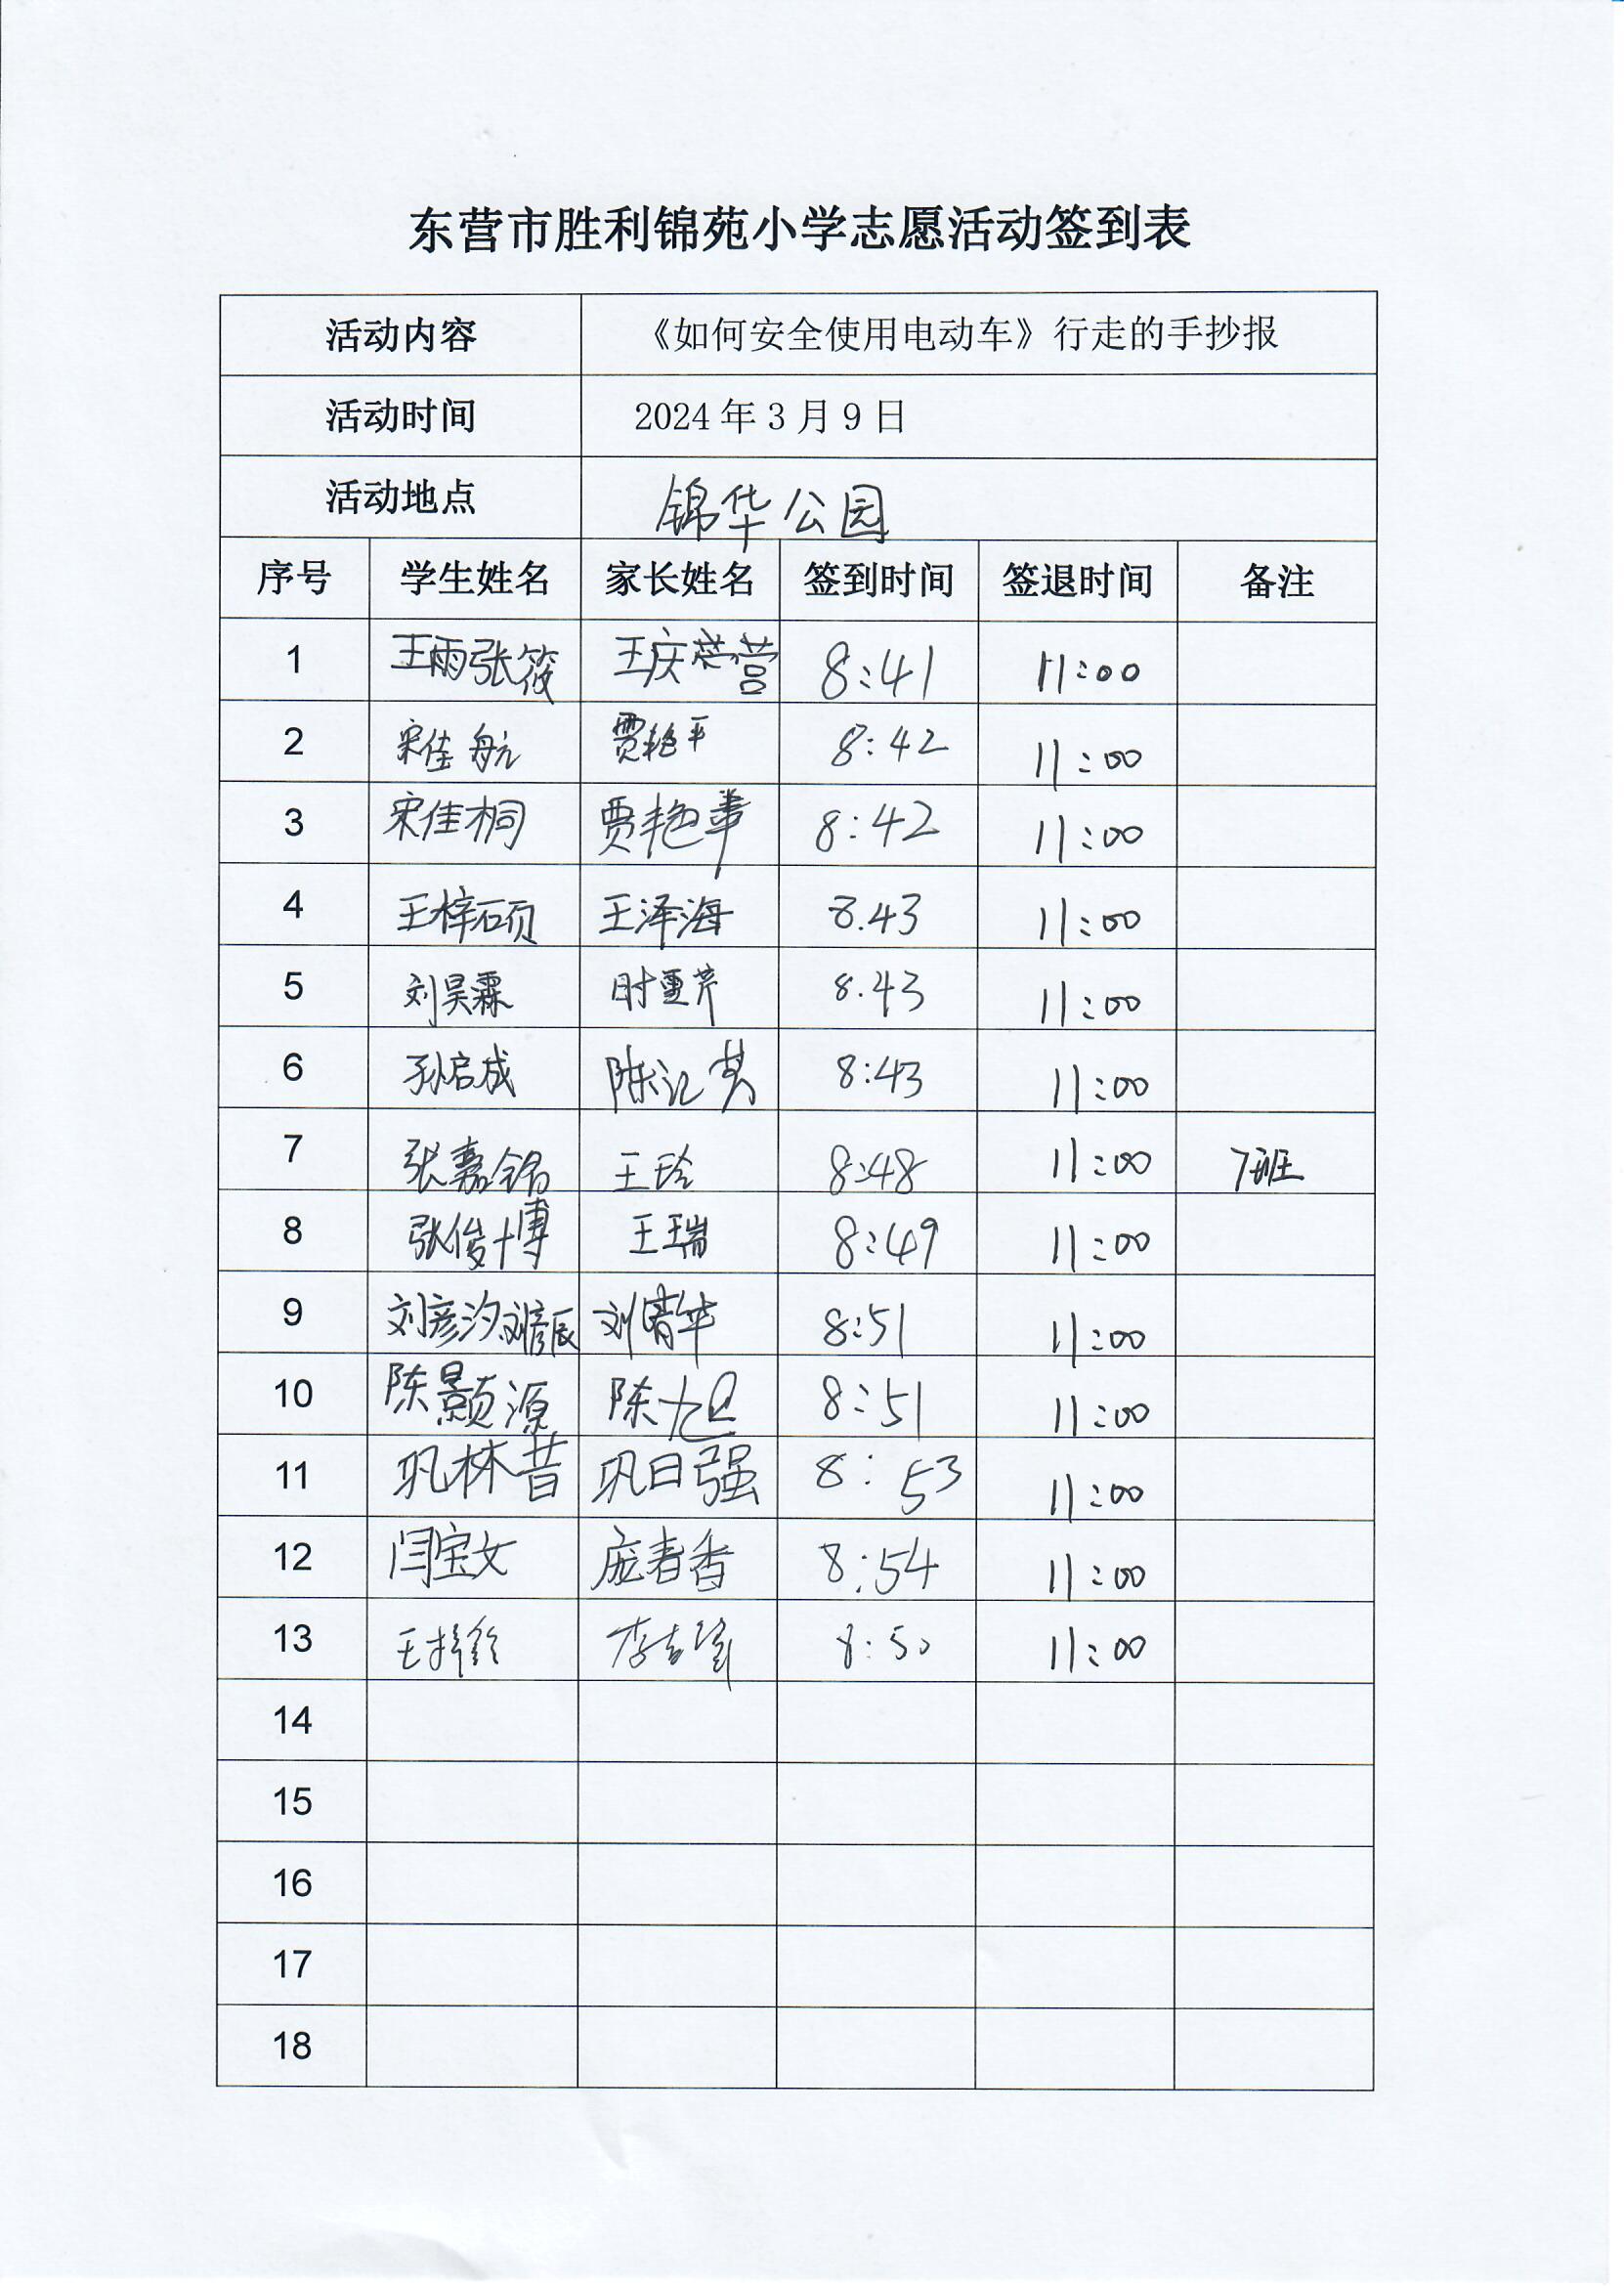 东营市胜利锦苑小学志愿活动签到表
活动内容 《如何安全使用电动车》行走的手抄报
活动时间 2024年3月9日
活动地点 锦华公园
序号 学生姓名 家长姓名 签到时间 签退时间 备注
1 王雨张筱 王庆营 8:41 11:00
2 宋佳航 贾艳平 8:42 11:00
3 宋佳桐 贾艳苹 8:42 11:00
4 王梓硕 王泽海 8.43 11:00
5 刘昊霖 时重芹 8.43 11:00
6 孙启成 陈江英 8:43 11:00
7 张嘉锦 王玲 8:48 11:00 7班
8 张俊博 王瑞 8:49 11:00
9 刘彦汐 刘彦辰 刘青华 8:51 11:00
10 陈颢源 陈旭 8:51 11:00
11 巩林昔 巩日强 8:53 11:00
12 闫宝文 庞春香 8:54 11:00
13 王梓 李 8:50 11:00
14
15
16
17
18